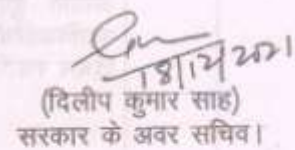 18/12/2021
(दिलीप कुमार साह)
सरकार के अवर सचिव।